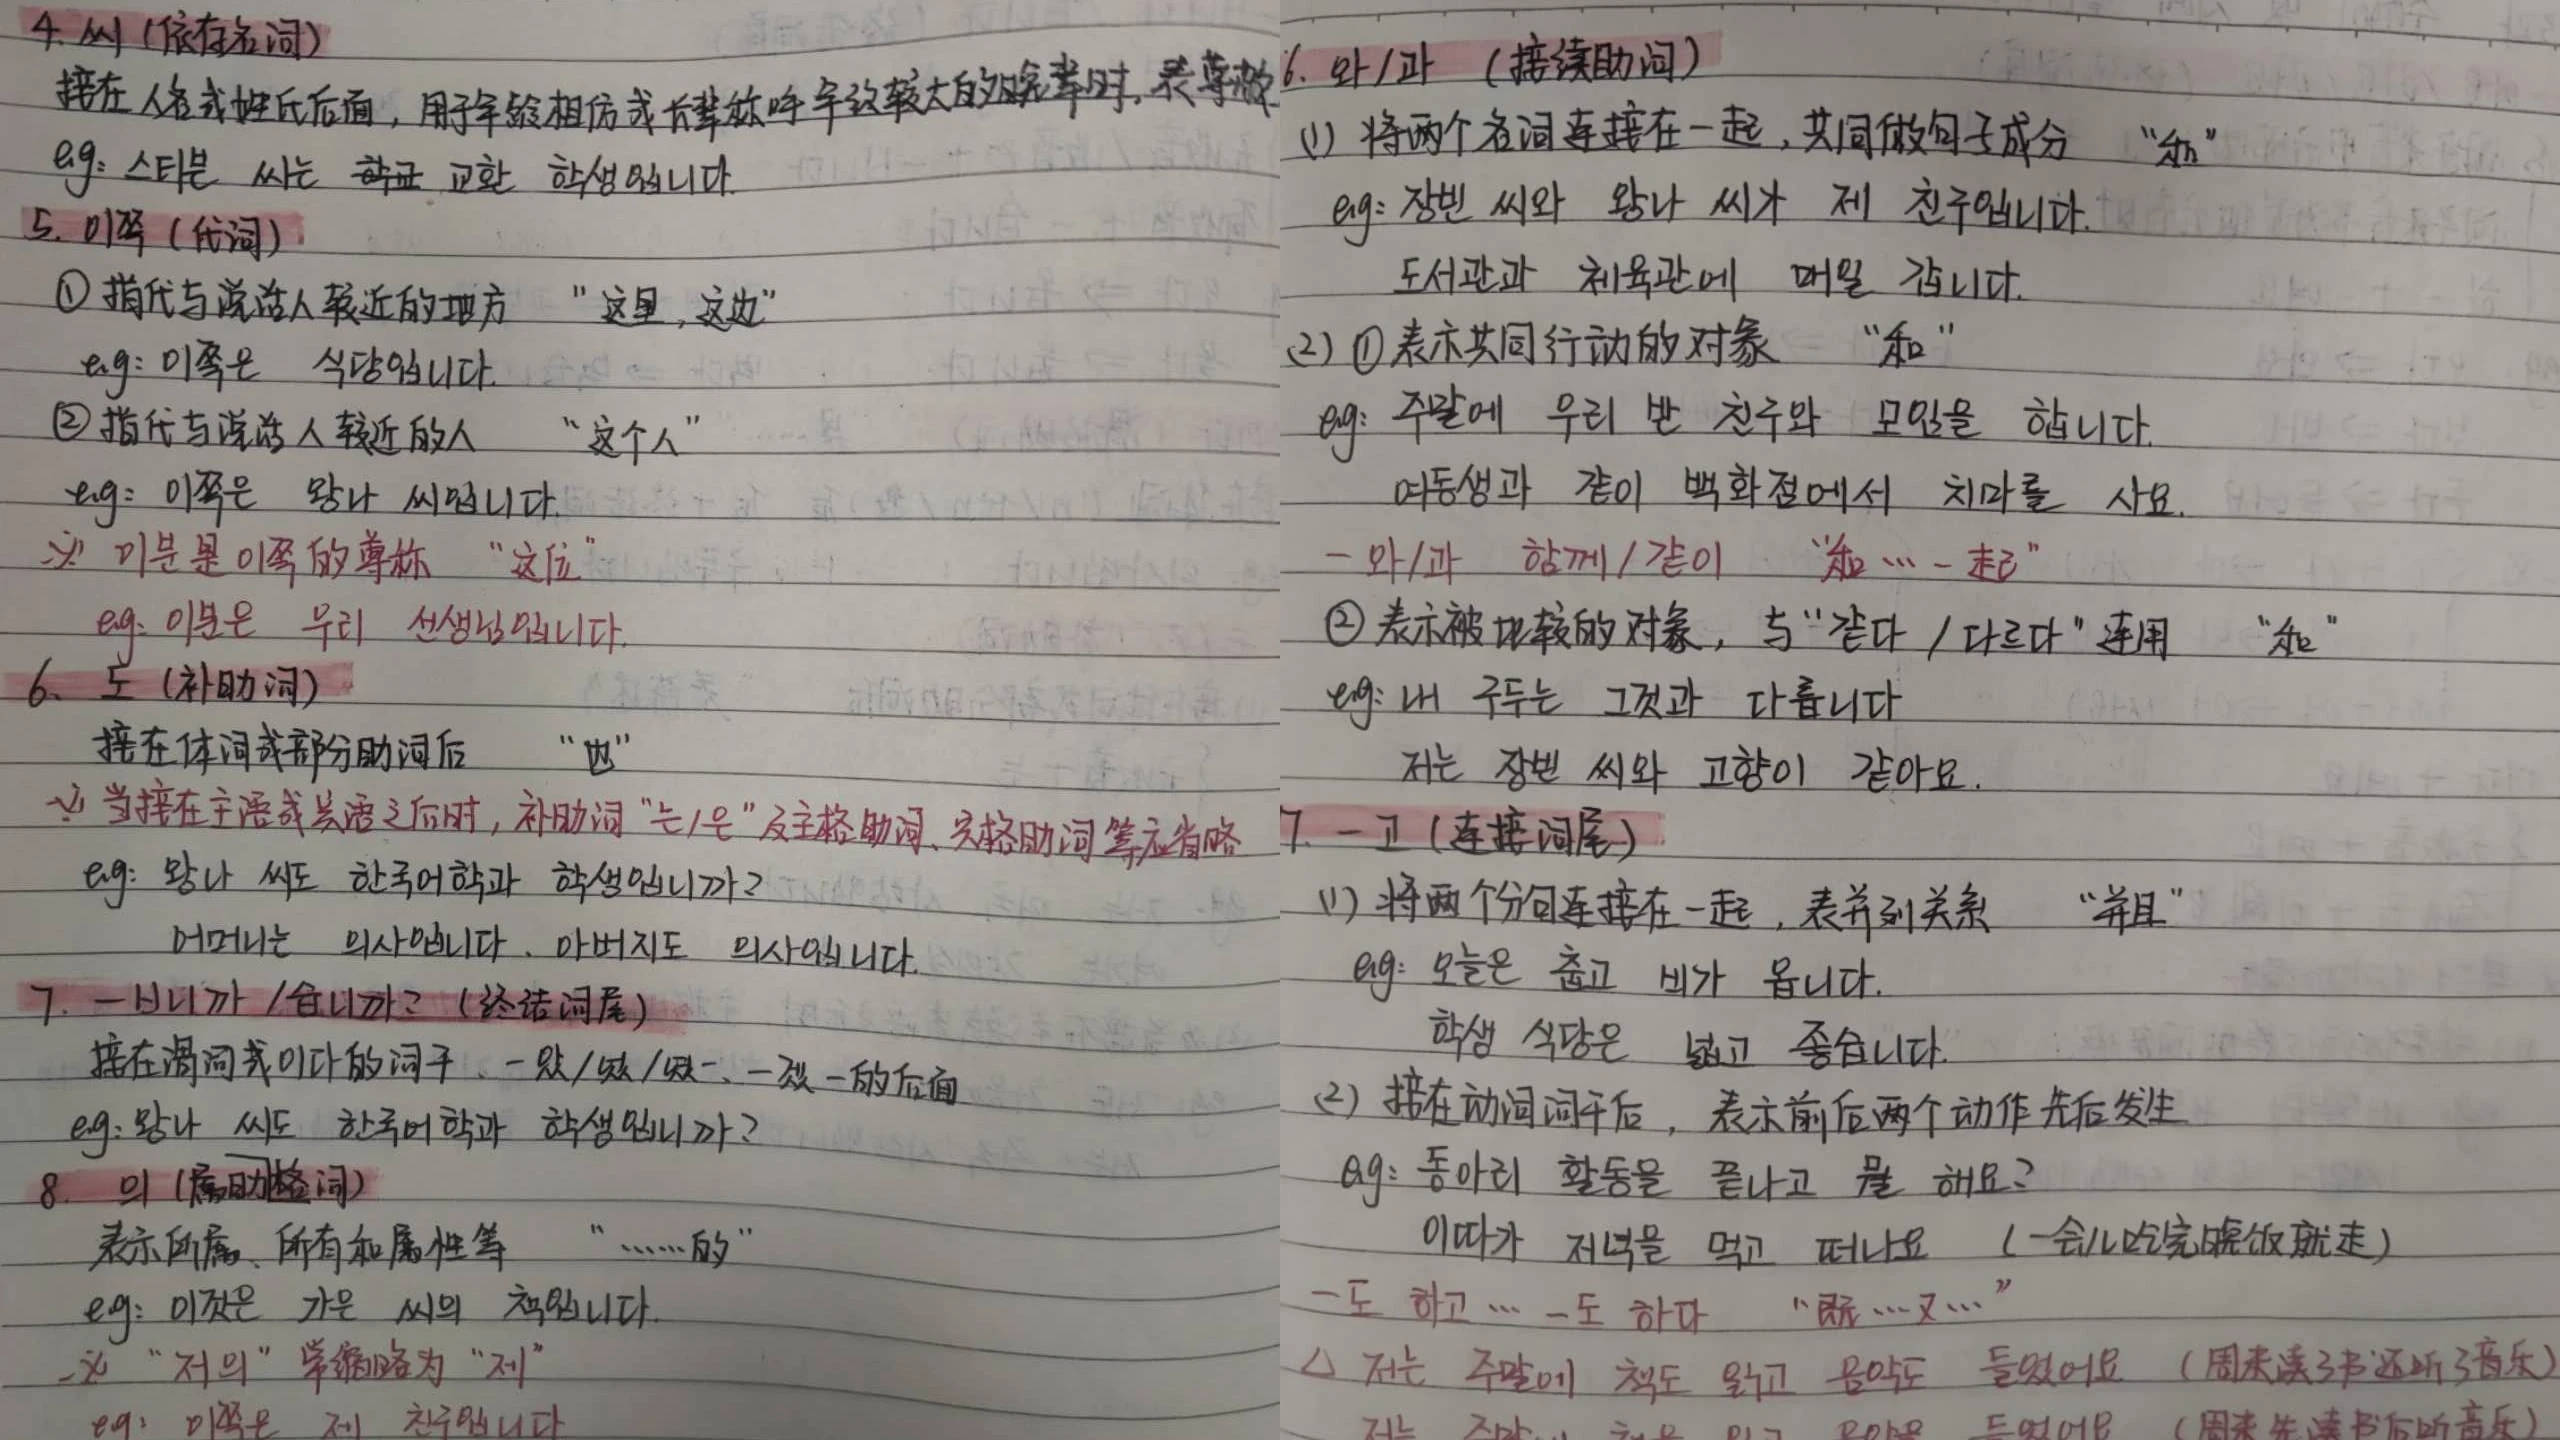 4. 씨 (依存名词)
接在人名或姓氏后面，用于年龄相仿或长辈称呼年纪较大的晚辈时，表尊敬
eg: 스티븐 씨는 교환 학생입니다.
5. 이쪽 (代词)
① 指代与说话人较近的地方 “这里，这边”
eg: 이쪽은 식당입니다.
② 指代与说话人较近的人 “这个人”
eg: 이쪽은 왕나 씨입니다.
※ 이분是이쪽的尊称 “这位”
eg: 이분은 우리 선생님입니다.
6. 도 (补助词)
接在体词或部分助词后 “也”
※ 当接在主语或宾语之后时，补助词“는/은”及主格助词、宾格助词等应省略
eg: 왕나 씨도 한국어학과 학생입니까?
어머니는 의사입니다. 아버지도 의사입니다.
7. -ㅂ니까/습니까? (终结词尾)
接在谓词或이다的词干、-았/었/였-、-겠-的后面
eg: 왕나 씨도 한국어학과 학생입니까?
8. 의 (属格助词)
表示所属、所有和属性等 “……的”
eg: 이것은 가은 씨의 책입니다.
※ “저의”常缩略为“제”
eg: 이쪽은 제 친구입니다
6. 와/과 (接续助词)
(1) 将两个名词连接在一起，共同做句子成分 “和”
eg: 장빈 씨와 왕나 씨가 제 친구입니다.
도서관과 체육관에 매일 갑니다.
(2) ① 表示共同行动的对象 “和”
eg: 주말에 우리 반 친구와 모임을 합니다.
여동생과 같이 백화점에서 치마를 사요.
-와/과 함께/같이 “和…一起”
② 表示被比较的对象，与“같다/다르다”连用 “和”
eg: 내 구두는 그것과 다릅니다
저는 장빈 씨와 고향이 같아요.
7. -고 (连接词尾)
(1) 将两个分句连接在一起，表并列关系 “并且”
eg: 오늘은 춥고 비가 옵니다.
학생 식당은 넓고 좋습니다.
(2) 接在动词词干后，表示前后两个动作先后发生
eg: 동아리 활동을 끝나고 뭘 해요?
이따가 저녁을 먹고 떠나요 (一会儿吃完晚饭就走)
-도 하고… -도 하다 “既…又…”
△ 저는 주말에 책도 읽고 음악도 들었어요 (周末读了书还听了音乐)
저는 주말에 책을 읽고 음악을 들었어요 (周末先读书后听音乐)